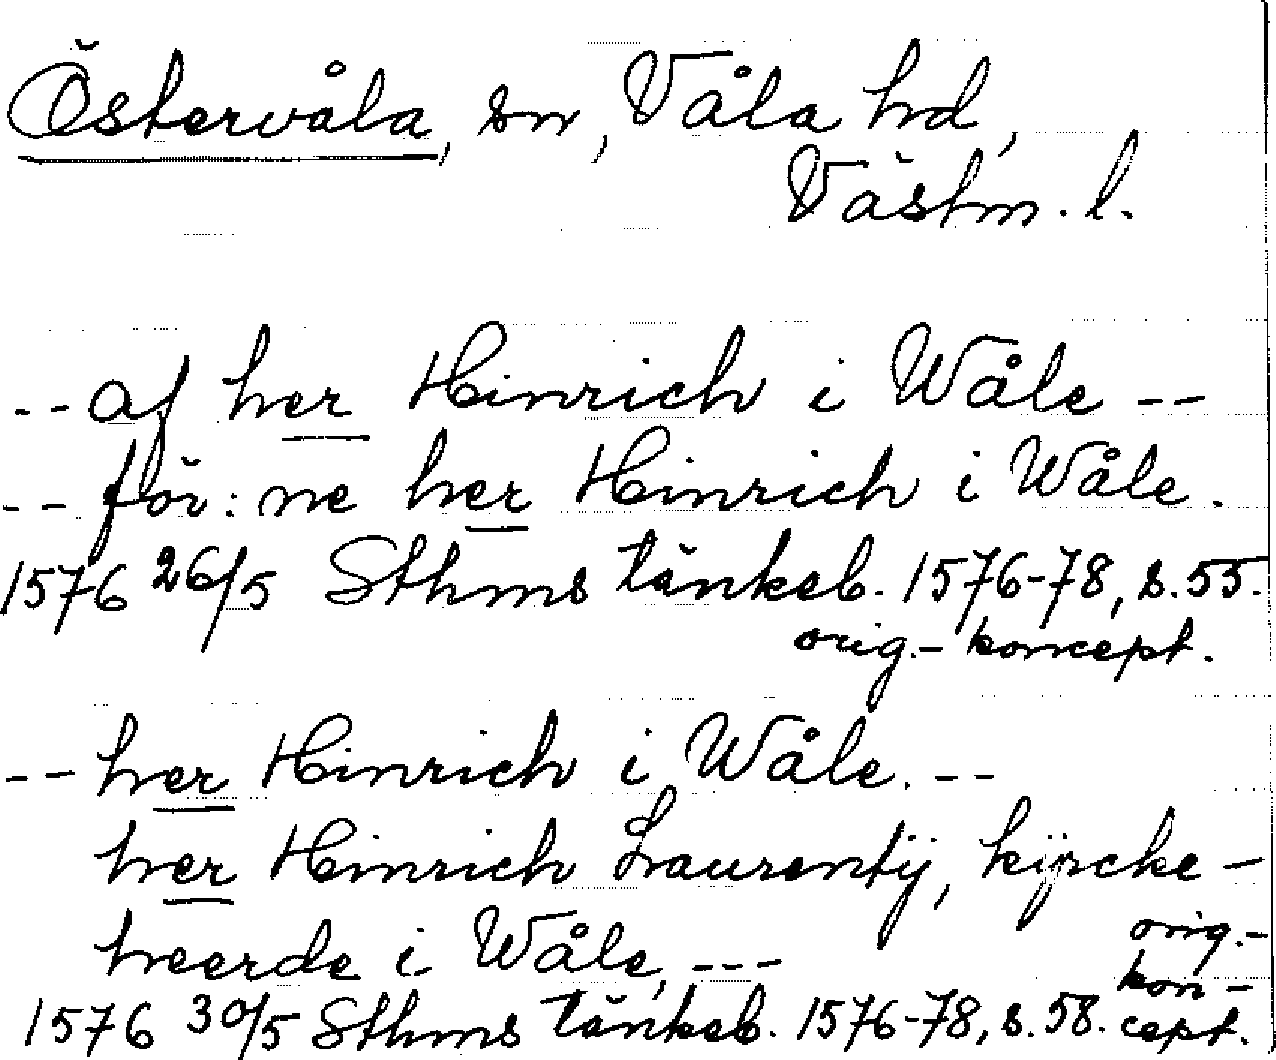 Östervåla, sn, Våla hd,
Västm. l.
-- af her Hinrich i Wåle --
-- för:ne her Hinrich i Wåle.
1576 26/5 Sthms tänkeb. 1576-78, s. 55.
orig.- koncept.
-- her Hinrich i Wåle. --
her Hinrich Laurentij, kijrcke-
heerde i Wåle, ---
1576 30/5 Sthms tänkeb. 1576-78, s. 58. orig.-kon-cept.